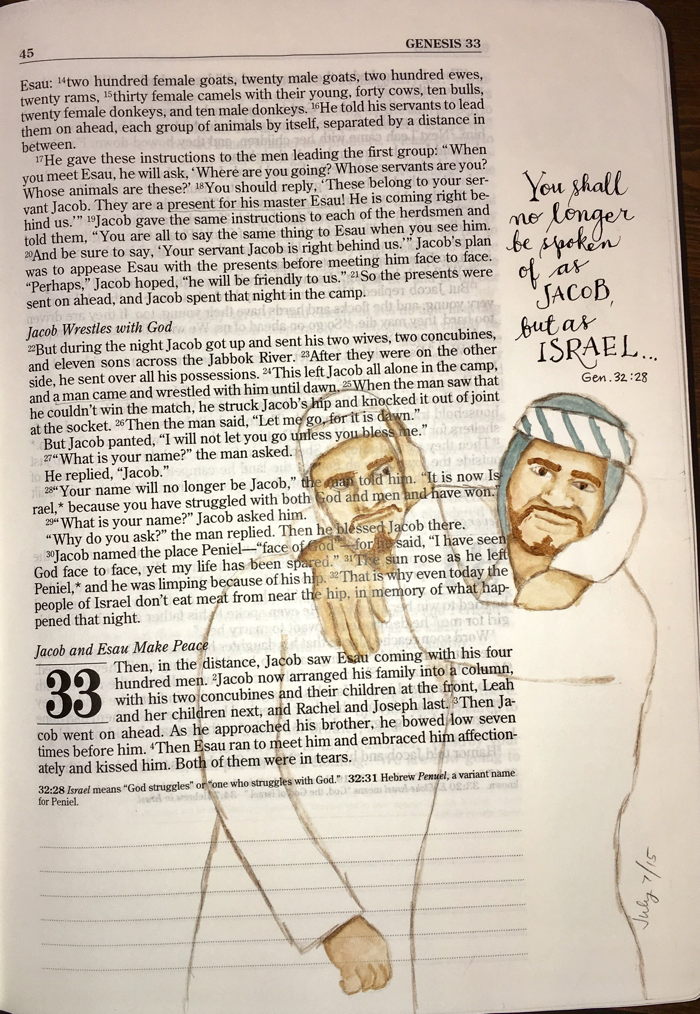 45
GENESIS 33
Esau: 14two hundred female goats, twenty male goats, two hundred ewes,
twenty rams, 15thirty female camels with their young, forty cows, ten bulls,
twenty female donkeys, and ten male donkeys. 16He told his servants to lead
them on ahead, each group of animals by itself, separated by a distance in
between.
17He gave these instructions to the men leading the first group: “When
you meet Esau, he will ask, ‘Where are you going? Whose servants are you?
Whose animals are these?’ 18You should reply, ‘These belong to your ser-
vant Jacob. They are a present for his master Esau! He is coming right be-
hind us.’” 19Jacob gave the same instructions to each of the herdsmen and
told them, “You are all to say the same thing to Esau when you see him.
20And be sure to say, ‘Your servant Jacob is right behind us.’” Jacob’s plan
was to appease Esau with the presents before meeting him face to face.
“Perhaps,” Jacob hoped, “he will be friendly to us.” 21So the presents were
sent on ahead, and Jacob spent that night in the camp.
Jacob Wrestles with God
22But during the night Jacob got up and sent his two wives, two concubines,
and eleven sons across the Jabbok River. 23After they were on the other
side, he sent over all his possessions. 24This left Jacob all alone in the camp,
and a man came and wrestled with him until dawn. 25When the man saw that
he couldn’t win the match, he struck Jacob’s hip and knocked it out of joint
at the socket. 26Then the man said, “Let me go, for it is dawn.”
But Jacob panted, “I will not let you go unless you bless me.”
27“What is your name?” the man asked.
He replied, “Jacob.”
28“Your name will no longer be Jacob,” the man told him. “It is now Is-
rael,* because you have struggled with both God and men and have won.”
29“What is your name?” Jacob asked him.
“Why do you ask?” the man replied. Then he blessed Jacob there.
30Jacob named the place Peniel—“face of God”—for he said, “I have seen
God face to face, yet my life has been spared.” 31The sun rose as he left
Peniel,* and he was limping because of his hip. 32That is why even today the
people of Israel don’t eat meat from near the hip, in memory of what hap-
pened that night.
Jacob and Esau Make Peace
33 Then, in the distance, Jacob saw Esau coming with his four
hundred men. 2Jacob now arranged his family into a column,
with his two concubines and their children at the front, Leah
and her children next, and Rachel and Joseph last. 3Then Ja-
cob went on ahead. As he approached his brother, he bowed low seven
times before him. 4Then Esau ran to meet him and embraced him affection-
ately and kissed him. Both of them were in tears.
32:28 Israel means “God struggles” or “one who struggles with God.” 32:31 Hebrew Penuel, a variant name
for Peniel.
You shall
no longer
be spoken
of as
JACOB,
but as
ISRAEL...
Gen. 32:28
July 7/15